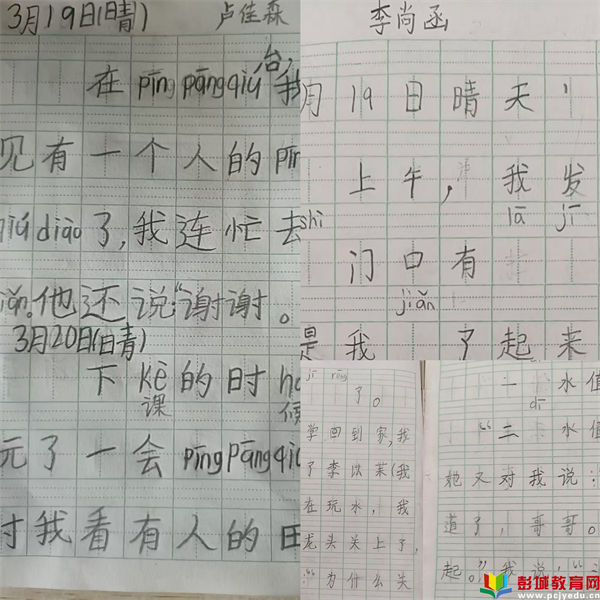 3月19日(晴) 卢佳森
台,
在pīng pāng qiú 我
见有一个人的pīn
qiú diào了,我连忙去
他还说:“谢谢。
3月20日(晴)
下kè的时hò
课 候
元了一会pīng pāng qiú
寸我看有人的
李尚函
月19日晴天
上午,我发
shi lā jī
门口有
jiǎn
是我 了起来
jī rēng
了。
学回到家,我
了李 某(我
在玩水,我
龙头关上了,
:“为什么关
一水值
dī
“二水值
她又对我说:
道了,哥哥。
起。”我说:“二
彭城教育网
www.pcjyedu.cn